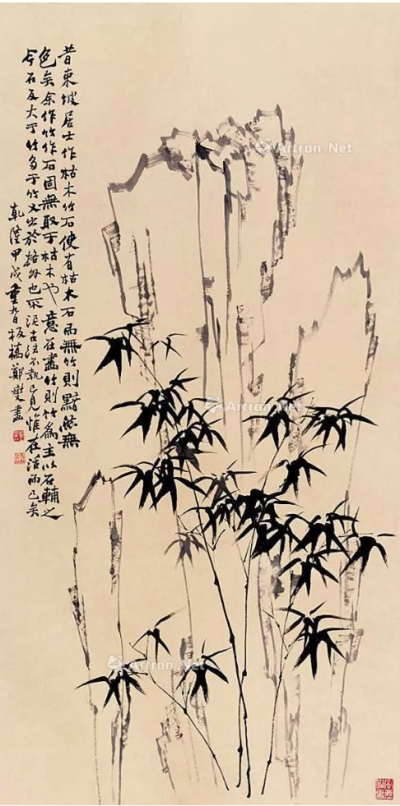 昔東坡居士作枯木竹石使有枯木石而無竹則黯然無
色矣余作竹作石固無取于枯木也意在畫竹則竹為主以石輔之
今石反大于竹多于竹又出於格外也不泥古法不執己見惟在活而已矣
乾隆甲戌重九日板橋鄭燮畫
Artron.Net
Artron.Net
Artron.Net